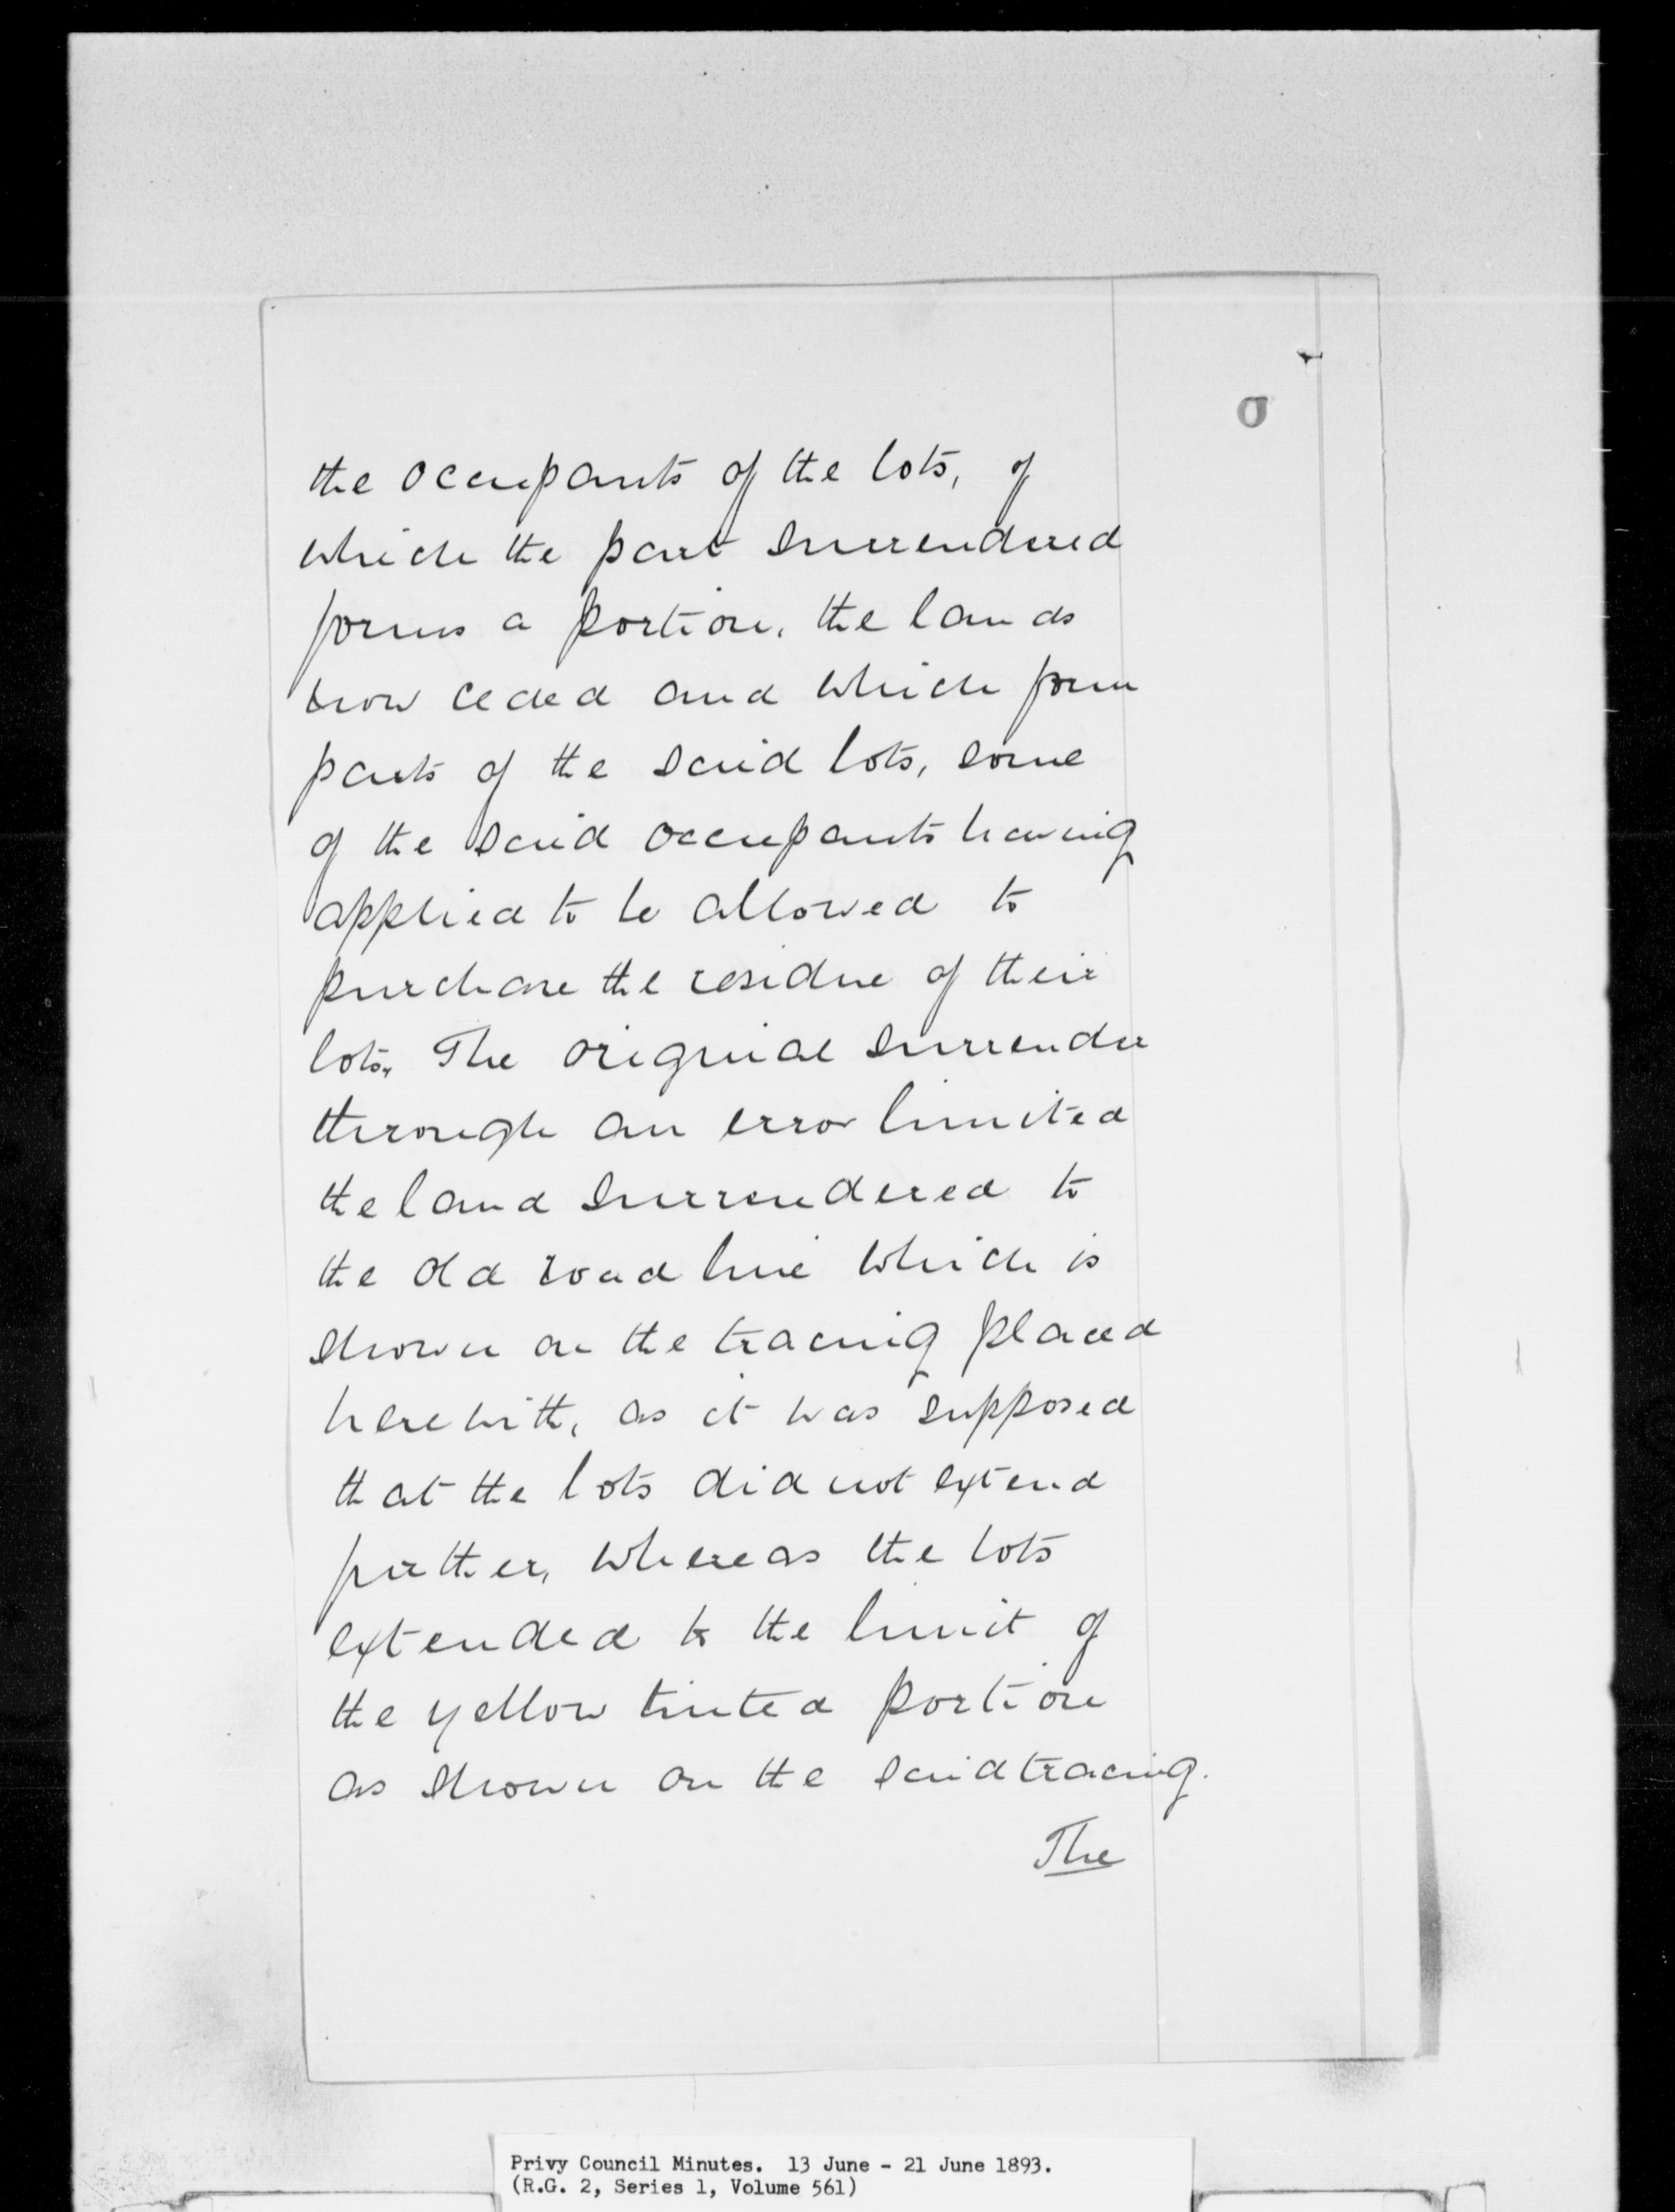 the occupants of the lots, of
which the part surrendered
forms a portion, the lands
now ceded and which form
parts of the said lots, some
of the said occupants having
applied to be allowed to
purchase the residue of their
lots. The original surrender
through an error limited
the land surrendered to
the old road line which is
shown on the tracing placed
herewith, as it was supposed
that the lots did not extend
further, whereas the lots
extended to the limit of
the yellow tinted portion
as shown on the said tracing.
The
Privy Council Minutes. 13 June - 21 June 1893.
(R.G. 2, Series 1, Volume 561)